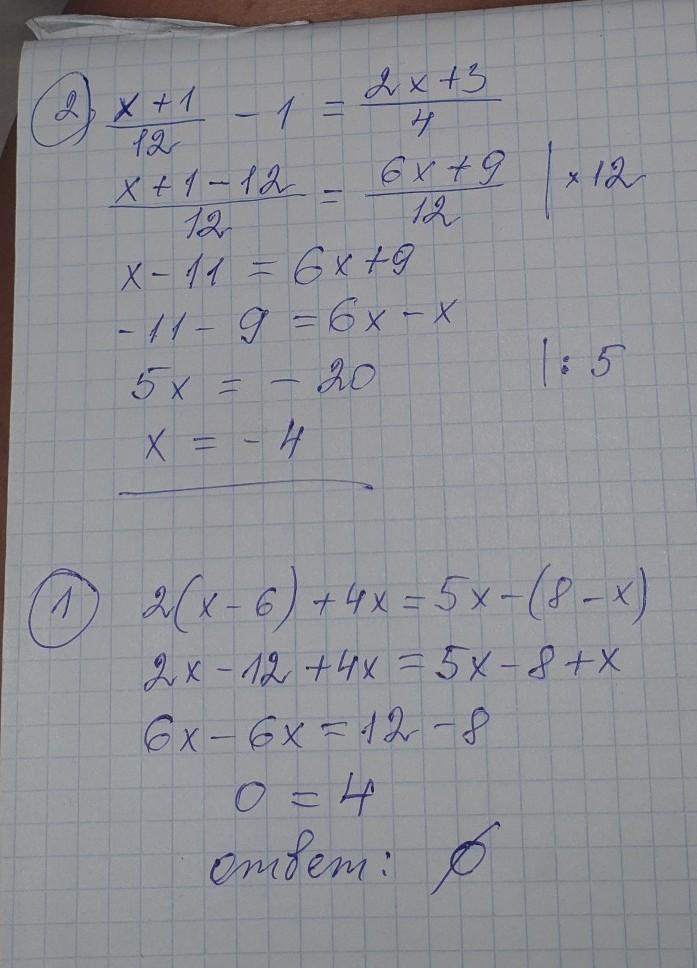 2) (x+1)/12 - 1 = (2x+3)/4
(x+1-12)/12 = (6x+9)/12 | ×12
x-11 = 6x+9
-11-9 = 6x-x
5x = -20 |: 5
x = -4
1 2(x-6)+4x=5x-(8-x)
2x-12+4x=5x-8+x
6x-6x=12-8
0 = 4
ответ: ∅